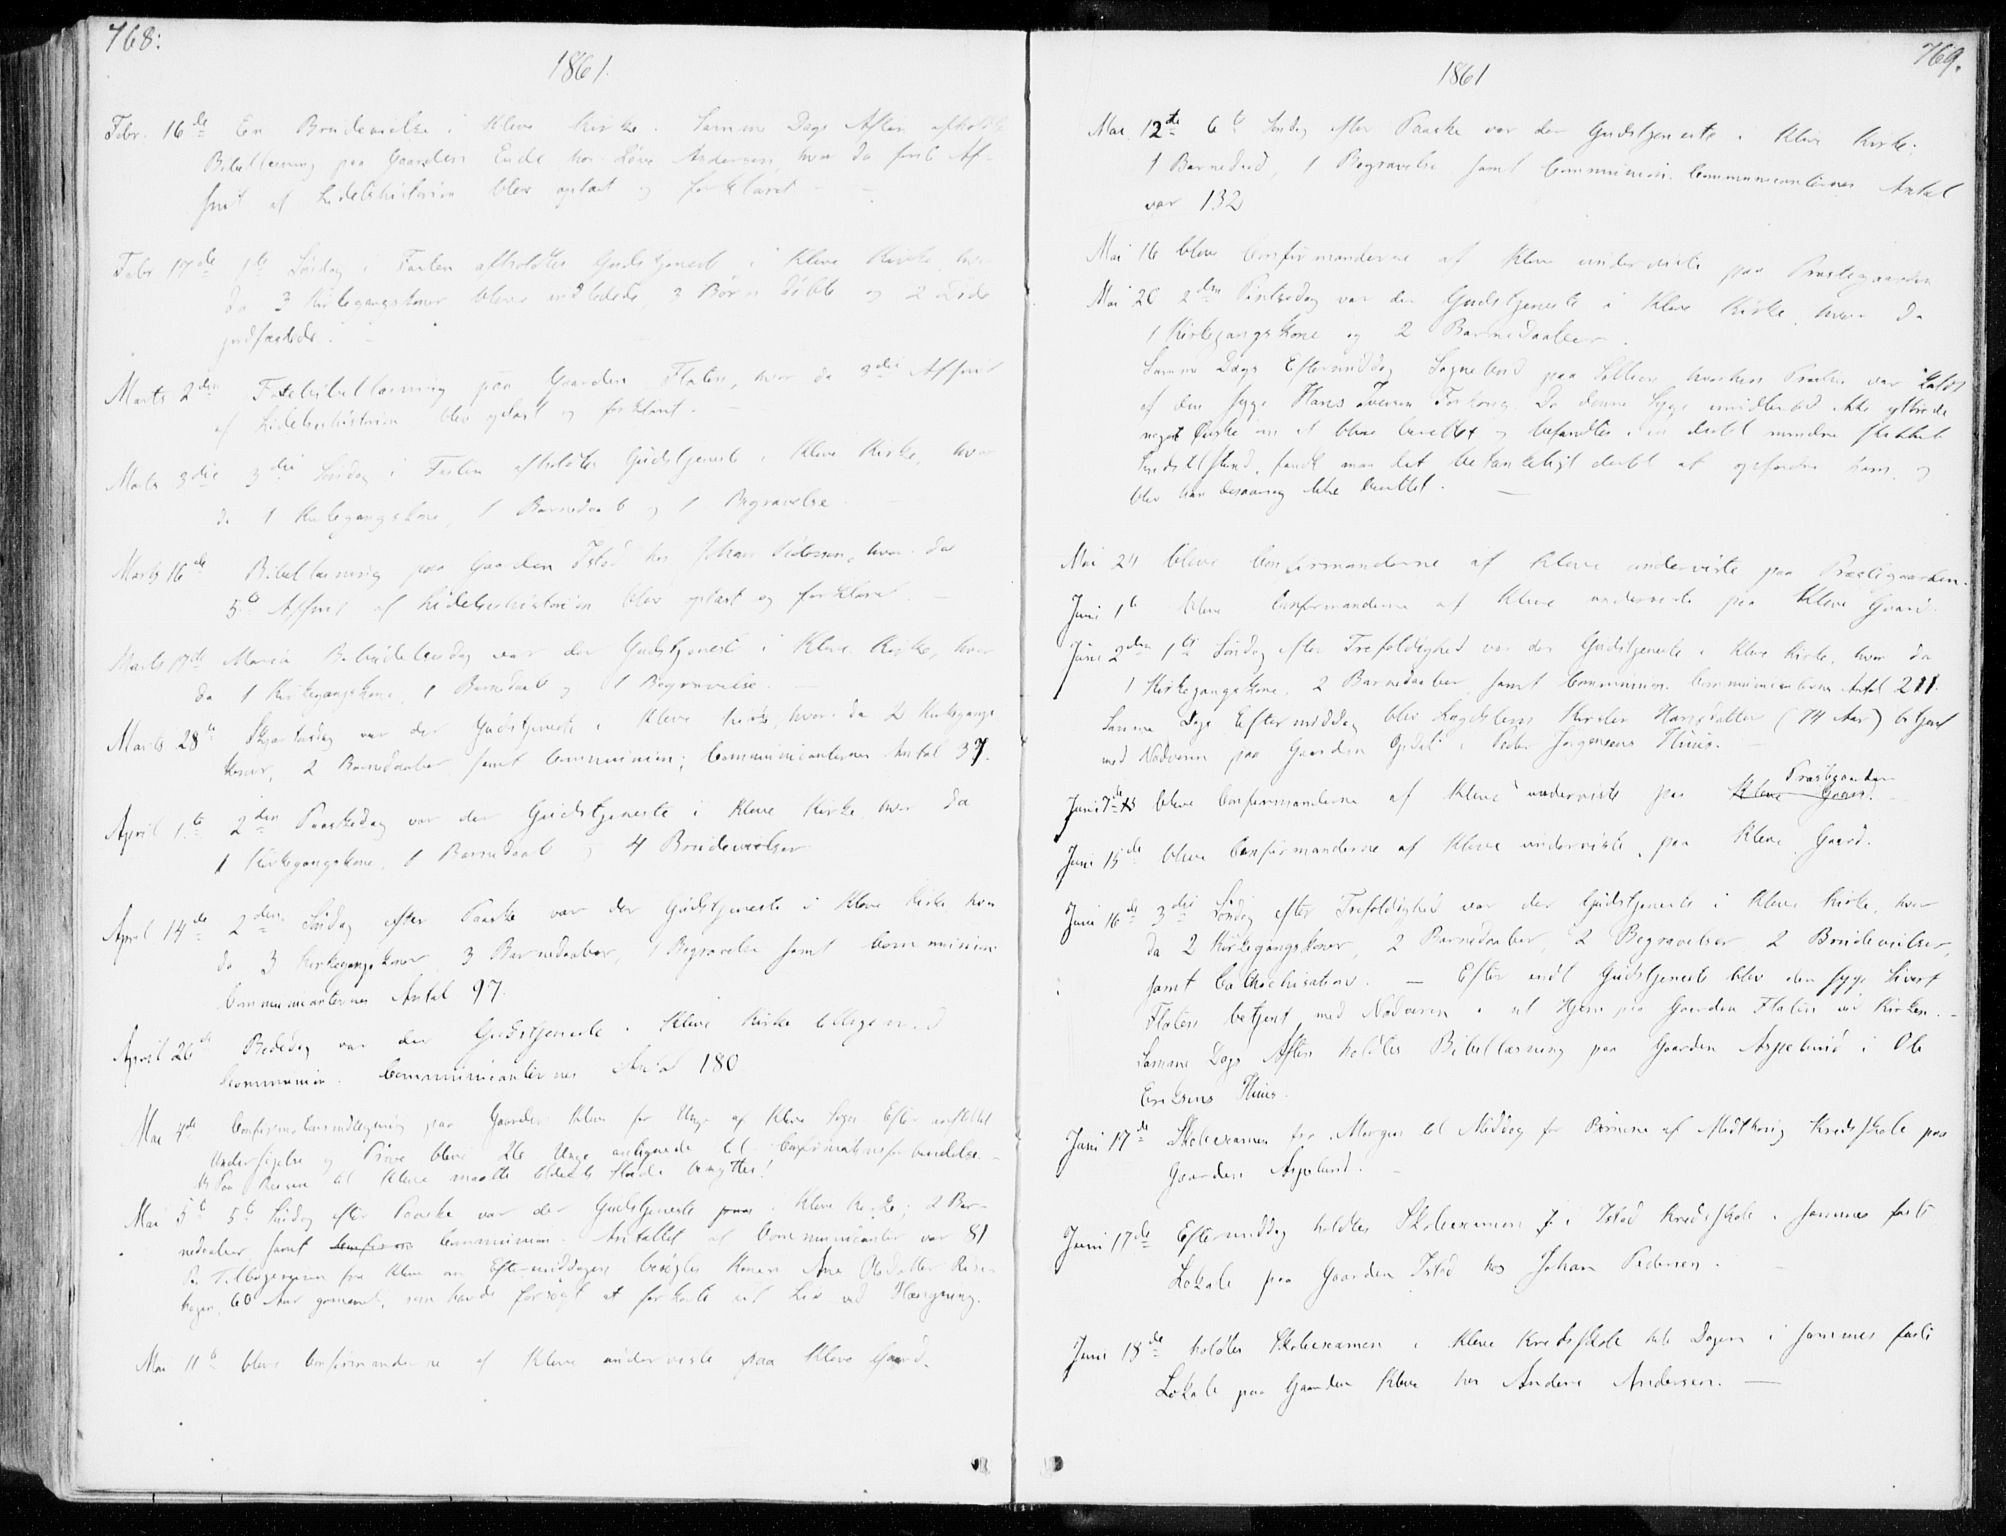 768:
1861.
Febr. 16de En Brudevielse i Kleve Kirke. Samme Dags Aften afholdtes
Bibellæsning paa Gaarden Ende hos Andersen, hvor da første Af-
snit af Lidelseshistorien blev oplæst og forklaret. -
Febr 17de 1ste Søndag i Fasten afholdtes Gudstjeneste i Kleve Kirke, hvor
da 3 Kirkegangskoner bleve indledede, 3 Børn døbte og 2 Døde
jordfæstede. -
Marts 2den Fastebibellæsning paa Gaarden Flaten, hvor da 3die Afsnit
af Lidelseshistorien blev oplæst og forklaret. -
Marts 3die 3die Søndag i Fasten afholdtes Gudstjeneste i Kleve Kirke, hvor
da 1 Kirkegangskone, 1 Barnedaab og 1 Begravelse. -
Marts 16de Bibellæsning paa Gaarden Istad hos Johan Pedersen, hvor da
5te Afsnit af Lidelseshistorien blev oplæst og forklaret. -
Marts 17de Mariæ Bebudelsesdag var der Gudstjeneste i Kleve Kirke, hvor
da 1 Kirkegangskone, 1 Barnedaab og 1 Begravelse. -
Marts 28de Skjærtorsdag var der Gudstjeneste i Kleve Kirke, hvor da 2 Kirkegangs-
koner, 2 Barnedaaber samt Communion; Communicanternes Antal 37.
April 1ste 2den Paaskedag var der Gudstjeneste i Kleve Kirke, hvor da
1 Kirkegangskone, 1 Barnedaab og 4 Brudevielser
April 14de 2den Søndag efter Paaske var der Gudstjeneste i Kleve Kirke, hvor
da 3 Kirkegangskoner, 3 Barnedaaber, 1 Begravelse samt Communion.
Communicanternes Antal 97.
April 26de Bededag var der Gudstjeneste i Kleve Kirke tilligemed
Kommunion. Communicanternes Antal 180
Mai 4de Confirmationsindtegning paa Gaarden Kleve for Unge af Kleve Sogn. Efter anstillet
Undersøgelse og Prøve bleve 26 Unge antegnede til Confirmationsforberedelse. -
NB Paa Reisen til Kleve maatte benyttes!
Mai 5te 5te Søndag efter Paaske var der Gudstjeneste paa i Kleve Kirke; 2 Bar-
nedaaber samt Communion. Antallet af Communicanter var 81
Paa Tilbagereisen fra Kleve om Eftermiddagen besøgtes Konen Ane Olsdatter
60 Aar gammel, som havde forsøgt at forkorte sit Liv ved Hængning.
Mai 11te bleve Confirmanderne af Kleve underviste paa Kleve Gaard.

769.
1861
Mai 12te 6te Søndag efter Paaske var der Gudstjeneste i Kleve Kirke;
1 Barnedaab, 1 Begravelse samt Communion. Communicanternes Antal
var 132
Mai 16 bleve Confirmanderne af Kleve underviste paa Præstegaarden
Mai 20 2den Pintsedag var der Gudstjeneste i Kleve Kirke, hvor da
1 Kirkegangskone og 2 Barnedaaber.
Samme Dags Eftermiddag Sognebud paa hvorhen Præsten var kaldt
af den syge Hans Iversen. Da denne Syge imidlertid ikke yttrede
noget Ønske om at blive berettet og befandtes i en dertil mindre skikket
Sindstilstand, fandt man det betænkeligt dertil at opfordre ham, og
blev han desaarsag ikke berettet. -
Mai 24 bleve Confirmanderne af Kleve underviste paa Præstegaarden.
Juni 1ste bleve Confirmanderne af Kleve underviste paa Kleve Gaard.
Juni 2den 1ste Søndag efter Trefoldighed var der Gudstjeneste i Kleve Kirke, hvor da
1 Kirkegangskone, 2 Barnedaaber samt Communion. Communicanternes Antal 211.
Samme Dags Eftermiddag blev Lægdslem Kirsten Hansdatter (74 Aar) betjent
med Nadveren paa Gaarden Opdal i Peder Jørgensens Huus. -
Juni 7de bleve Confirmanderne af Kleve underviste paa Kleve Gaard. Præstegaarden
Juni 15de bleve Confirmanderne af Kleve underviste paa Kleve Gaard.
Juni 16de 3die Søndag efter Trefoldighed var der Gudstjeneste i Kleve Kirke, hvor
da 2 Kirkegangskoner, 2 Barnedaaber, 2 Begravelser, 2 Brudevielser,
samt Catechisation. - Efter endt Gudstjeneste blev den syge Sivert
Flaten betjent med Nadveren i sit Hjem paa Gaarden Flaten ved Kirken. -
Samme Dags Aften holdtes Bibellæsning paa Gaarden Aspelund i Ole
Eriksens Huus.
Juni 17de Skoleexamen fra Morgen til Middag for Børnene af Kredsskole paa
Gaarden Aspelund. -
Juni 17de Eftermiddag holdtes Skoleexamen i Istad Kredsskole i sammes faste
Lokale paa Gaarden Istad hos Johan Pedersen. -
Juni 18de holdtes Skoleexamen i Kleve Kredsskole hele Dagen i sammes faste
Lokale paa Gaarden Kleve hos Anders Andersen. -